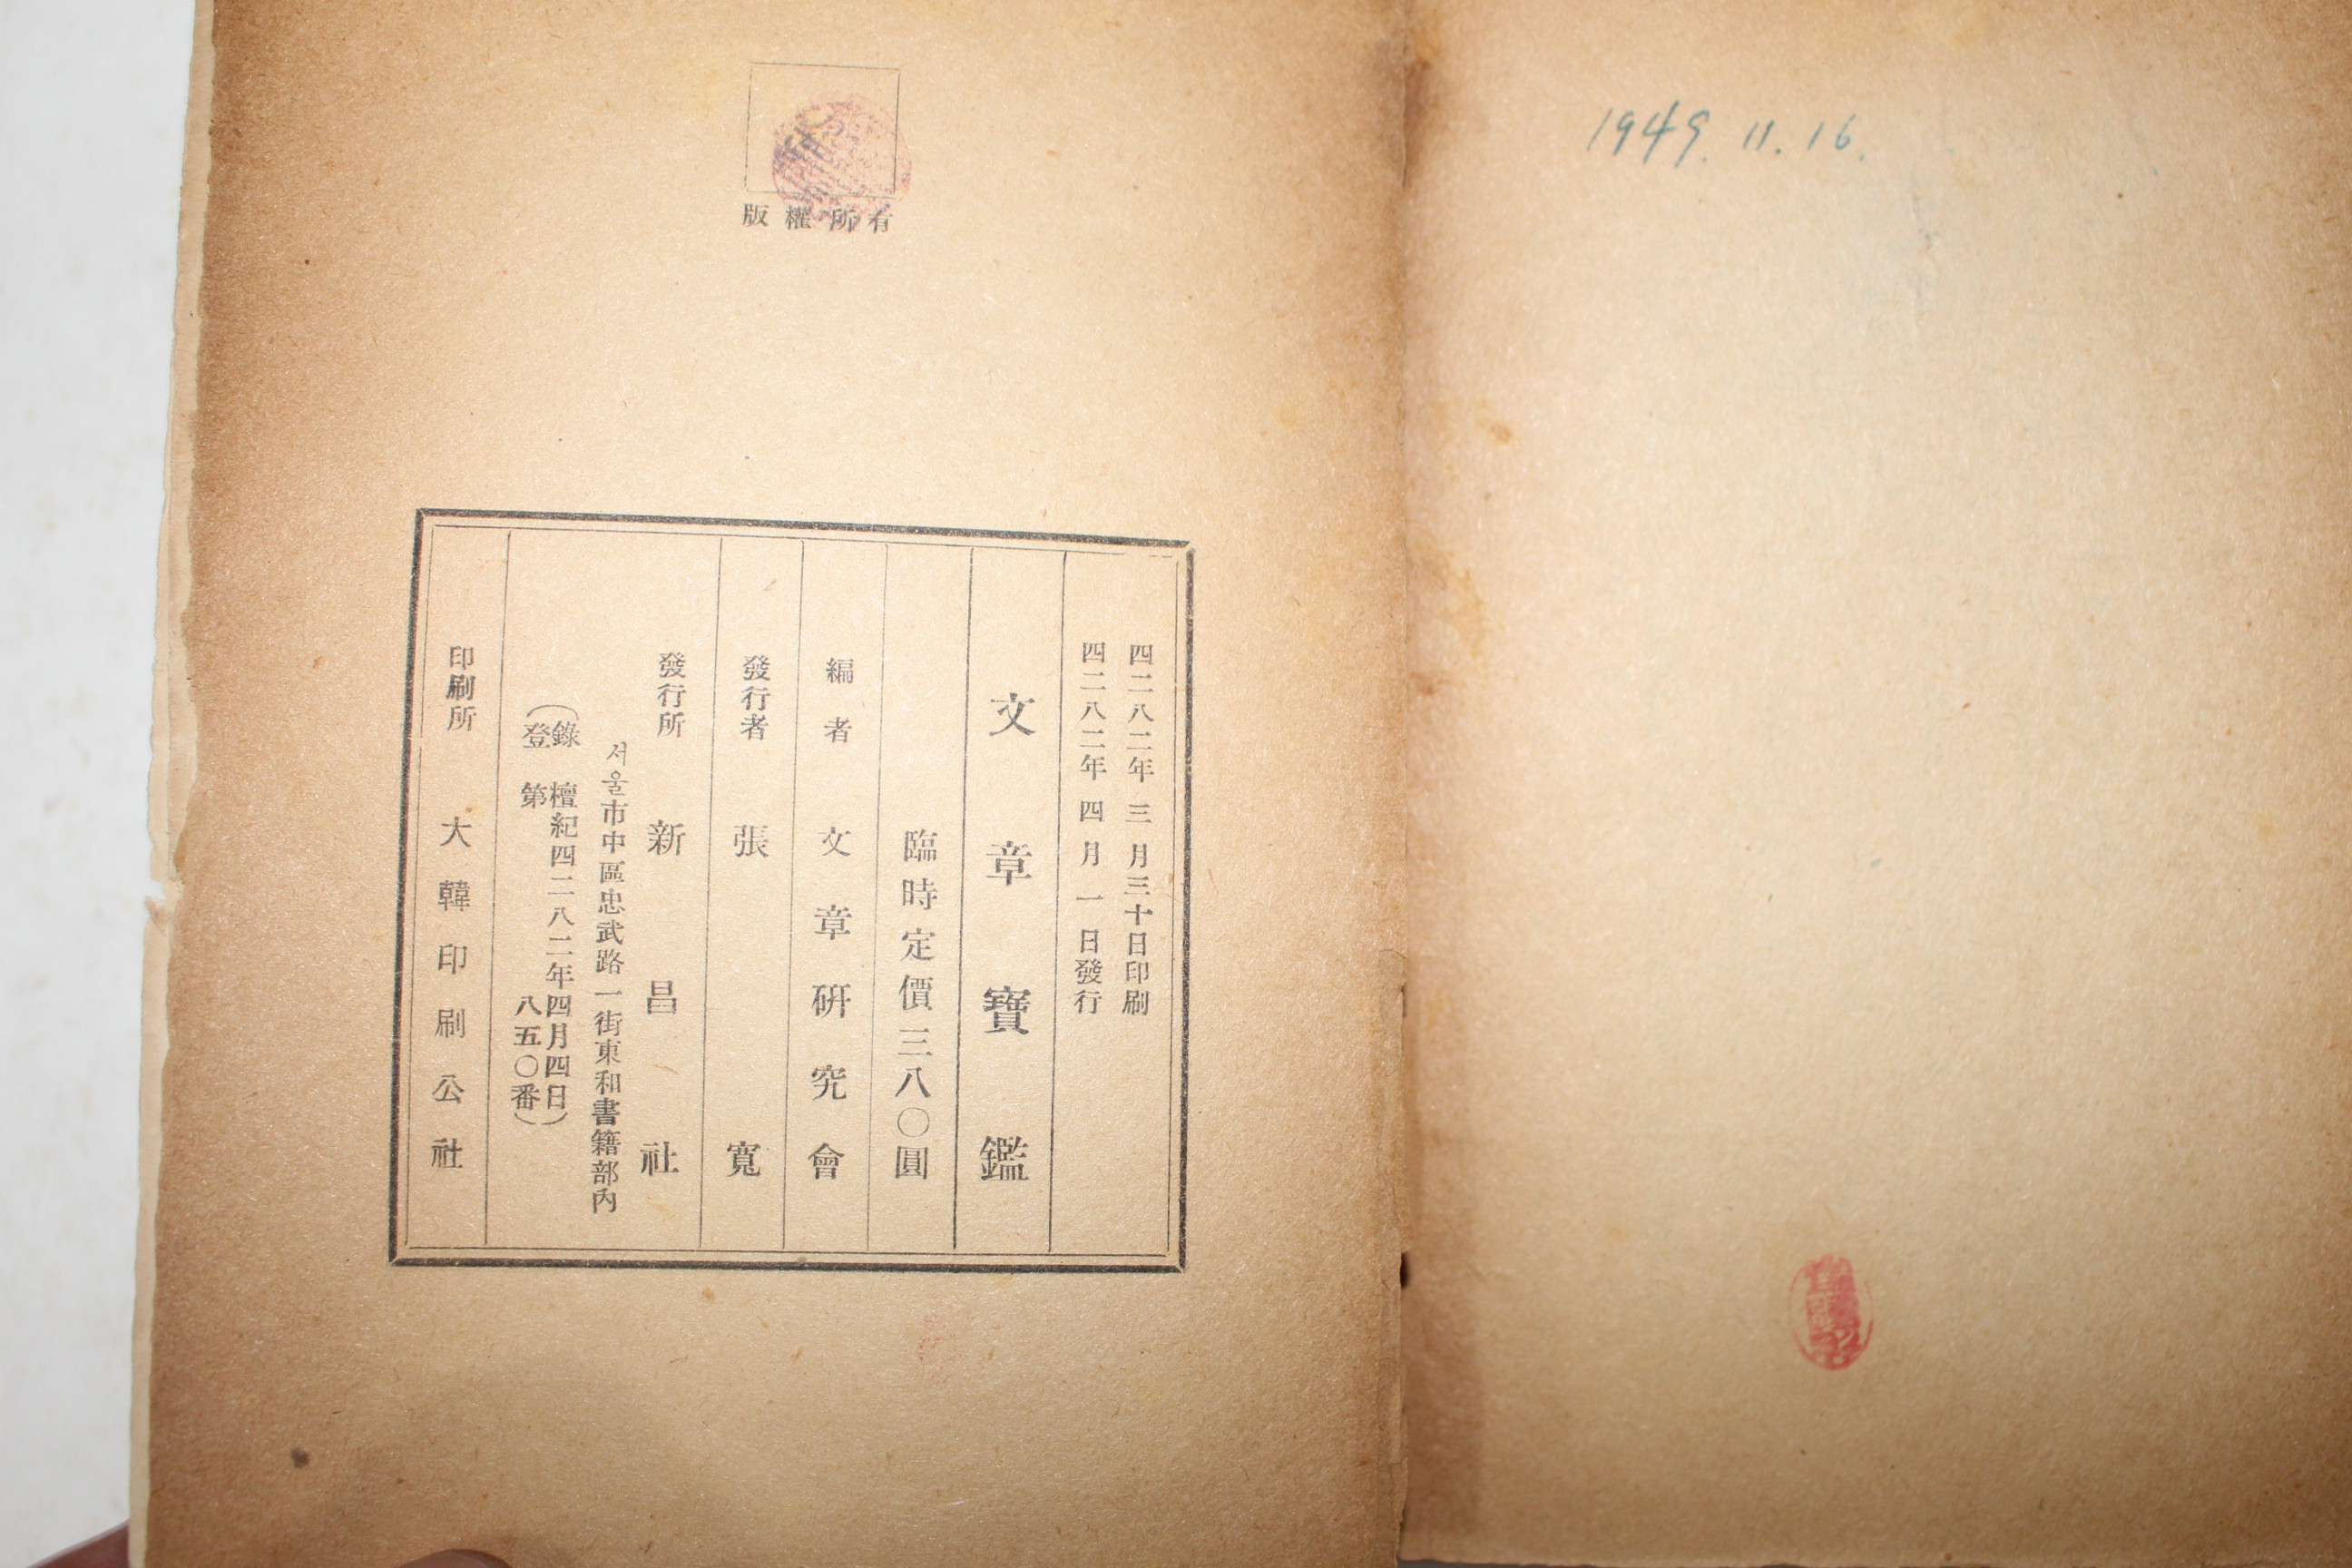 1949. 11. 16.
版權所有
四二八二年 三月三十日印刷
四二八二年 四月 一日發行
文章寶鑑
臨時定價三八〇圓
編者 文章硏究會
發行者 張寬
發行所 新昌社
서울市中區忠武路一街東和書籍部內
(登錄 檀紀四二八二年四月四日
第 八五〇番)
印刷所 大韓印刷公社